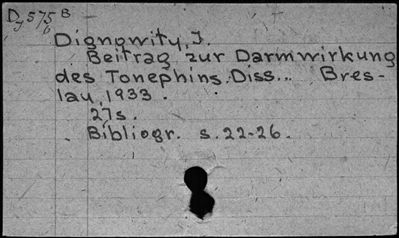 D 575 B
Dignowity, J.
Beitrag zur Darmwirkung
des Tonephins. Diss... Bres-
lau, 1933.
27s.
Bibliogr. s. 22-26.